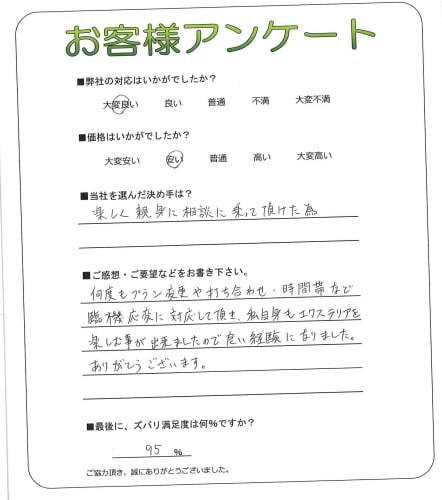 お客様アンケート
■弊社の対応はいかがでしたか？
大変良い 良い 普通 不満 大変不満
■価格はいかがでしたか？
大変安い 安い 普通 高い 大変高い
■当社を選んだ決め手は？
楽しく親身に相談に乗って頂けた為
■ご感想・ご要望などをお書き下さい。
何度もプラン変更や打ち合わせ・時間帯など
臨機応変に対応して頂き、私自身もエクステリアを
楽しむ事が出来ましたので良い経験になりました。
ありがとうございます。
■最後に、ズバリ満足度は何%ですか？
95 %
ご協力頂き、誠にありがとうございました。